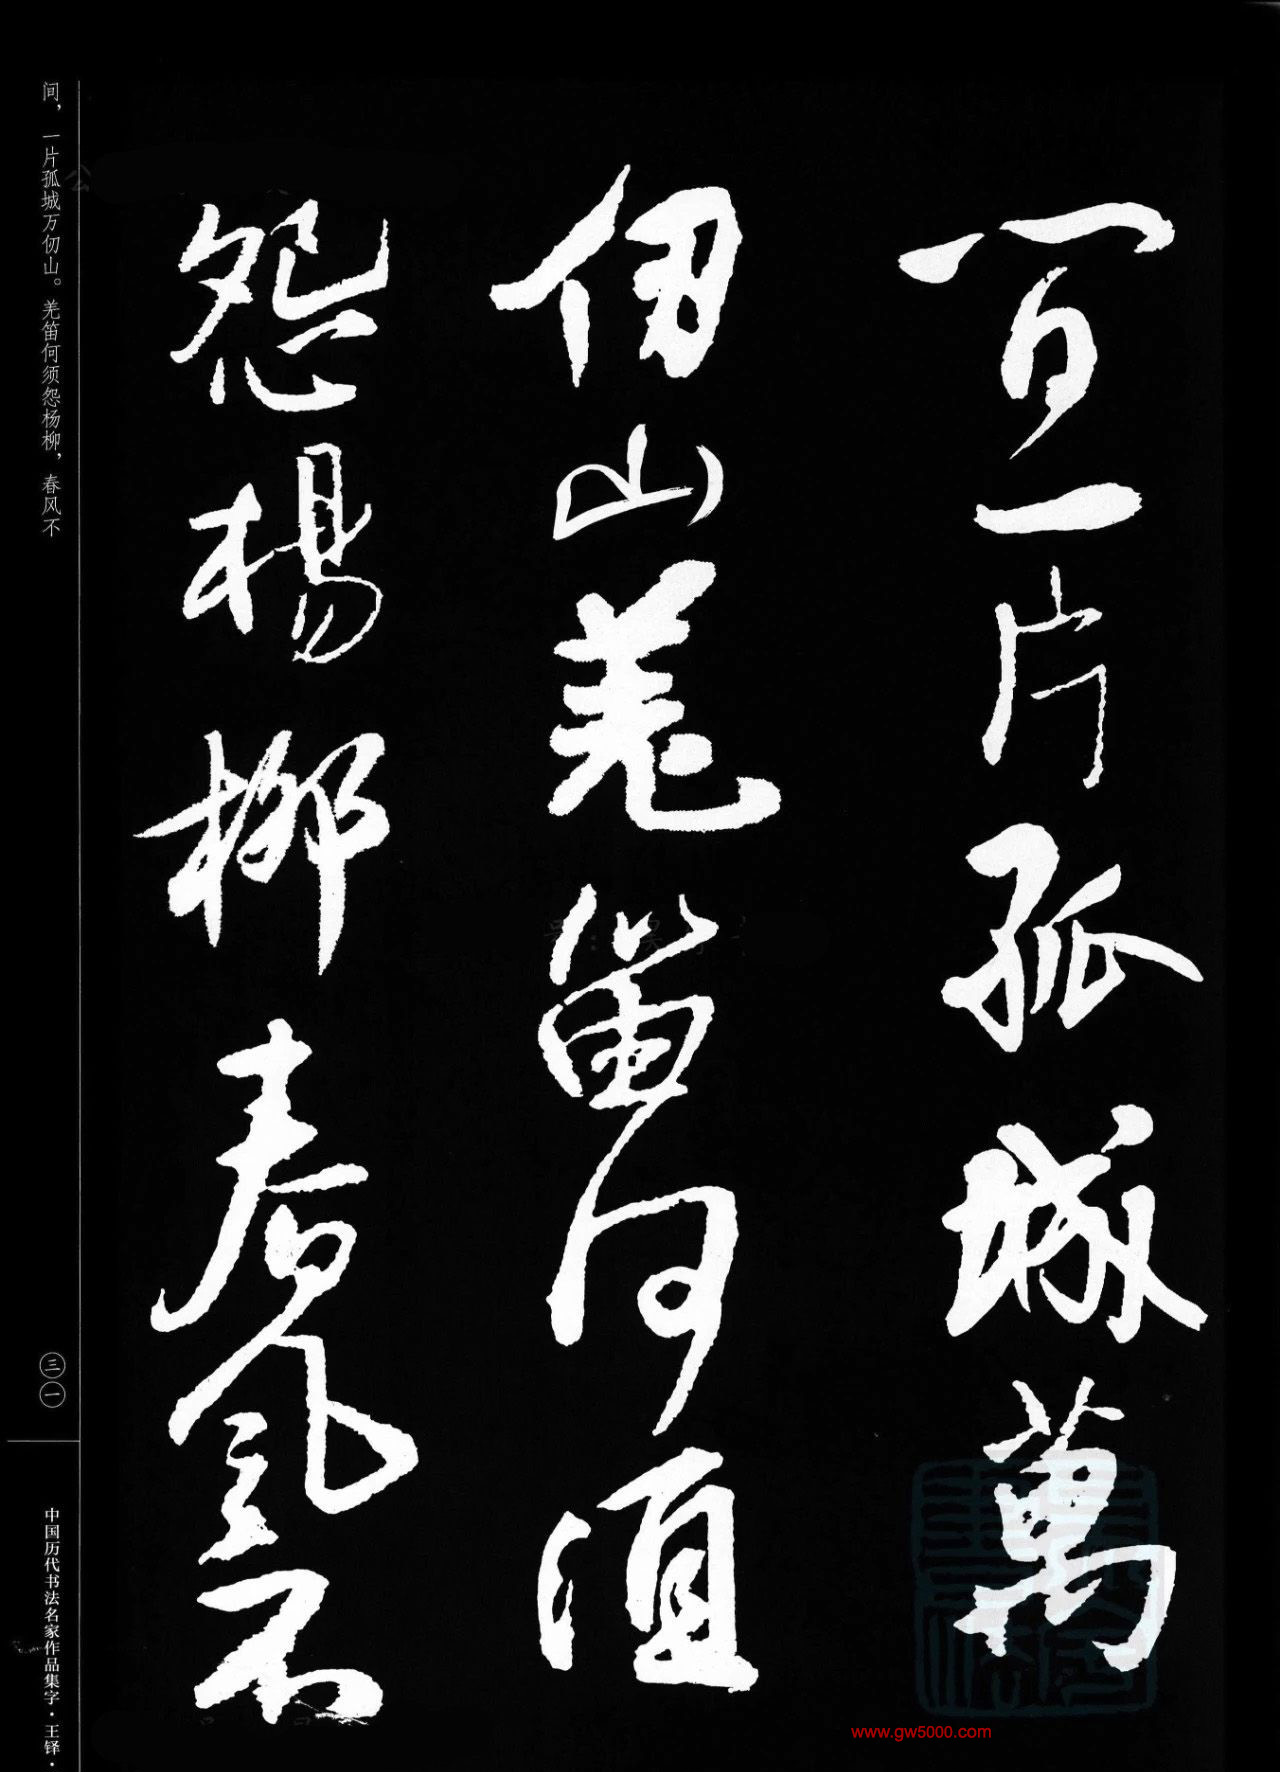 间一片孤城萬
仞山羌笛何須
怨楊柳春風不
间，一片孤城万仞山。羌笛何须怨杨柳，春风不
三一
中国历代书法名家作品集字·王铎·
www.gw5000.com